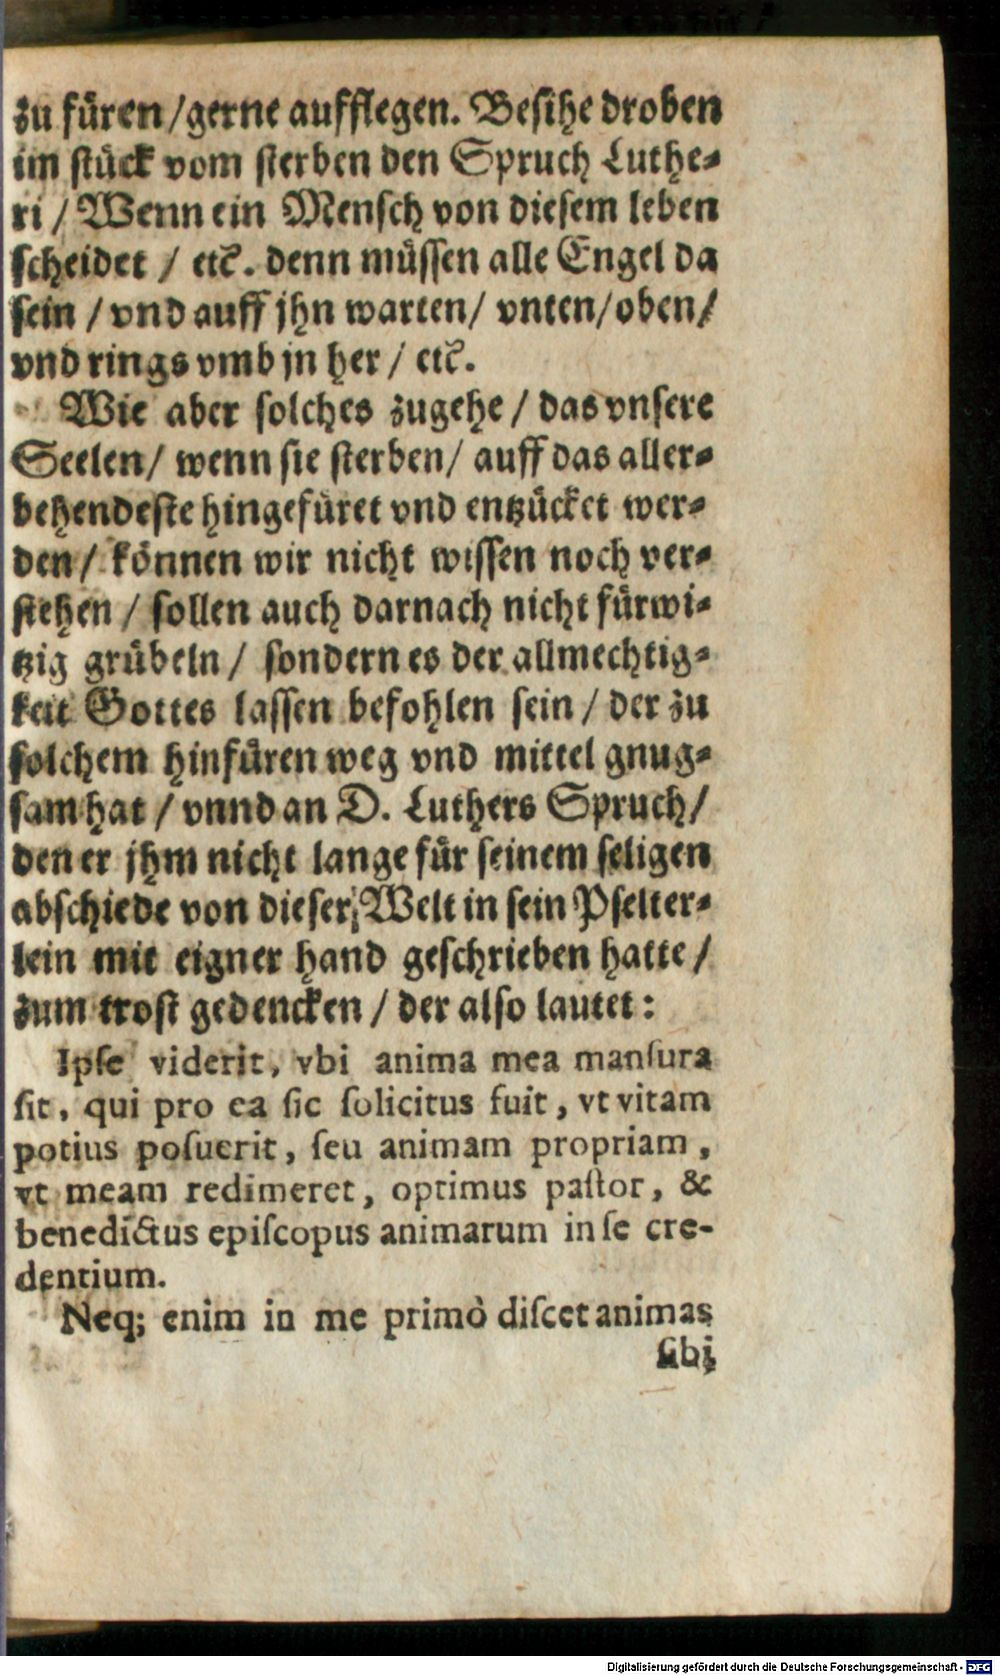 zu füren / gerne aufflegen. Besihe droben
im stück vom sterben den Spruch Luthe-
ri / Wenn ein Mensch von diesem leben
scheidet / etc. denn müssen alle Engel da
sein / vnd auff jhn warten / vnten / oben /
vnd rings vmb jn her / etc.
Wie aber solches zugehe / das vnsere
Seelen / wenn sie sterben / auff das aller-
behendeste hingefüret vnd entzücket wer-
den / können wir nicht wissen noch ver-
stehen / sollen auch darnach nicht fürwi-
tzig grübeln / sondern es der allmechtig-
keit Gottes lassen befohlen sein / der zu
solchem hinfüren weg vnd mittel gnug-
sam hat / vnnd an D. Luthers Spruch /
den er jhm nicht lange für seinem seligen
abschiede von dieser Welt in sein Pselter-
lein mit eigner hand geschrieben hatte /
zum trost gedencken / der also lautet:
Ipſe viderit, vbi anima mea manſura
ſit, qui pro ea ſic ſolicitus fuit, vt vitam
potius poſuerit, ſeu animam propriam,
vt meam redimeret, optimus paſtor, &
benedictus epiſcopus animarum in ſe cre-
dentium.
Neq; enim in me primò diſcet animas
ſibi
Digitalisierung gefördert durch die Deutsche Forschungsgemeinschaft - DFG